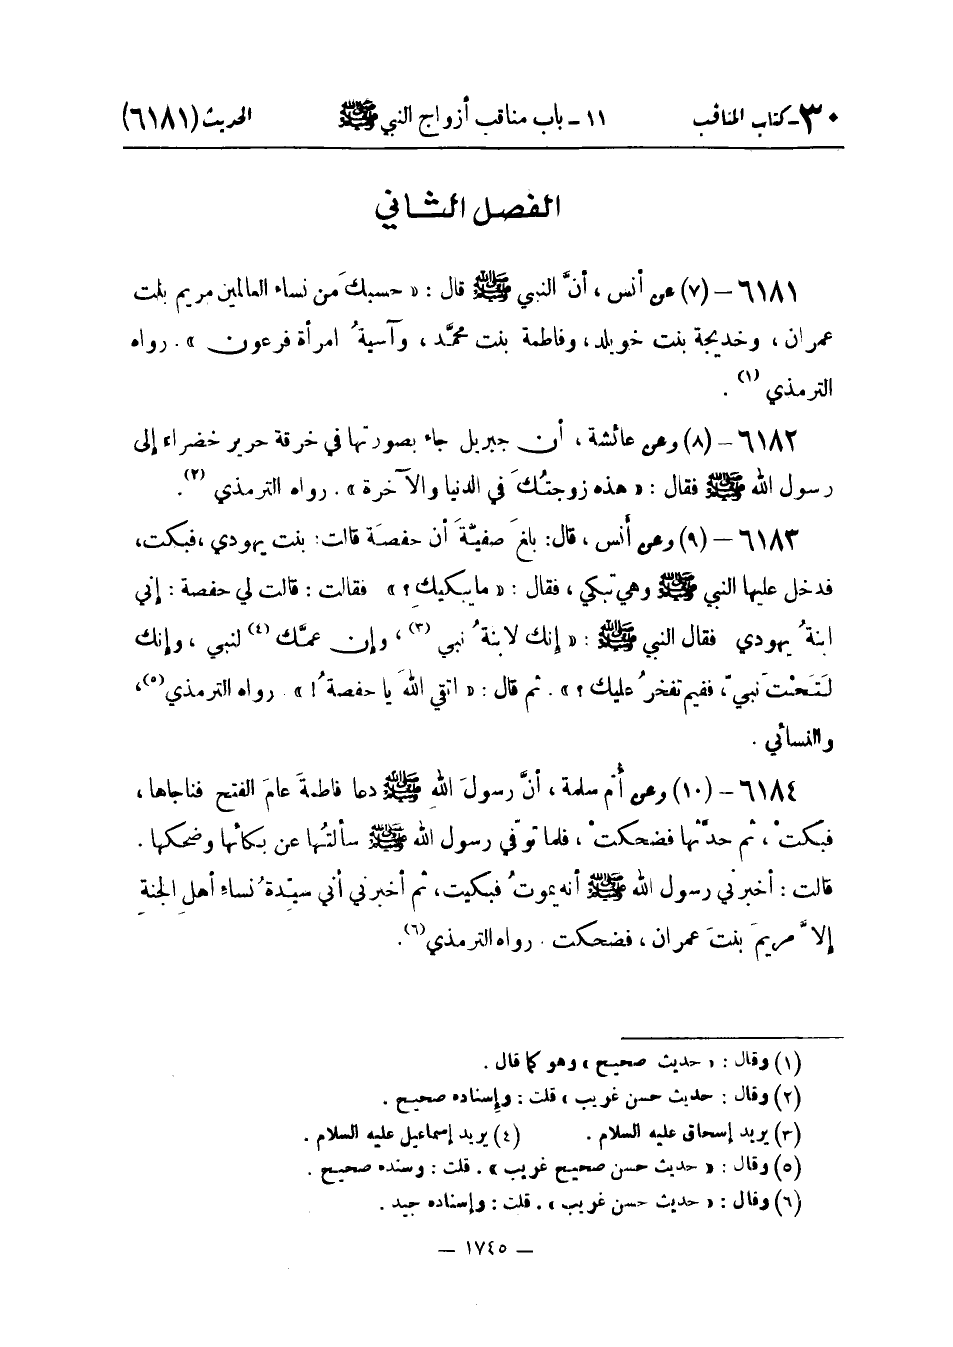 ٣٠ - كتاب المناقب ١١ - باب مناقب أزواج النبي ﷺ الحديث (٦١٨١)
الفصل الثاني
٦١٨١ - (٧) عن أنس ، أنَّ النبي ﷺ قال : « حسبكَ من نساء العالمين مريم بنت
عمران ، وخديجة بنت خويلد ، وفاطمة بنت محمَّد ، وآسيةُ امرأة فرعون » . رواه
الترمذي (١) .
٦١٨٢ - (٨) وعن عائشة ، أن جبريل جاء بصورتها في خرقة حرير خضراء إلى
رسول الله ﷺ فقال : « هذه زوجتُكَ في الدنيا والآخرة » . رواه الترمذي (٢) .
٦١٨٣ - (٩) وعن أنس ، قال: بلغَ صفيّةَ أن حفصة قالت: بنت يهودي ، فبكت،
فدخل عليها النبي ﷺ وهي تبكي ، فقال : « ما يبكيكِ ؟ » فقالت : قالت لي حفصة : إني
ابنةُ يهودي فقال النبي ﷺ : « إنك لابنةُ نبي (٣) ، وإن عمَّك (٤) لنبي ، وإنك
لَتَحْتَ نبيّ، ففيم تفخرُ عليك ؟ » . ثم قال : « اتقي اللهَ يا حفصةُ ! » . رواه الترمذي (٥) ،
والنسائي .
٦١٨٤ - (١٠) وعن أُم سلمة ، أنَّ رسولَ اللهِ ﷺ دعا فاطمةَ عامَ الفتح فناجاها ،
فبكتْ ، ثم حدَّثها فضحكتْ ، فلما توفّي رسول الله ﷺ سألتُها عن بكائها وضحكها .
قالت : أخبرني رسول الله ﷺ أنه يموتُ فبكيت، ثم أخبرني أني سيّدةُ نساءِ أهلِ الجنةِ
إلاَّ مريمَ بنتَ عمران ، فضحكت . رواه الترمذي (٦) .
(١) وقال : « حديث صحيح » وهو كما قال .
(٢) وقال : حديث حسن غريب » قلت : وإسناده صحيح .
(٣) يريد إسحاق عليه السلام . (٤) يريد إسماعيل عليه السلام .
(٥) وقال : « حديث حسن صحيح غريب » . قلت : وسنده صحيح .
(٦) وقال : « حديث حسن غريب » . قلت : وإسناده جيد .
— ١٧٤٥ —